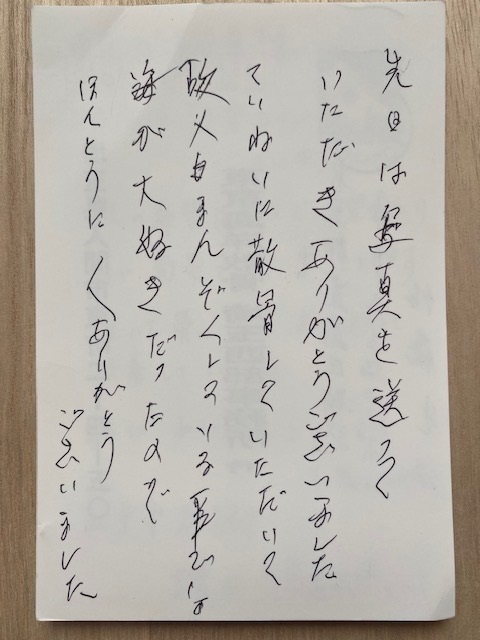 先日は写真を送って
いただきありがとうございました
ていねいに散骨していただいて
故父もまんぞくしている事で
海が大好きだったので
ほんとうに〱ありがとう
ございました